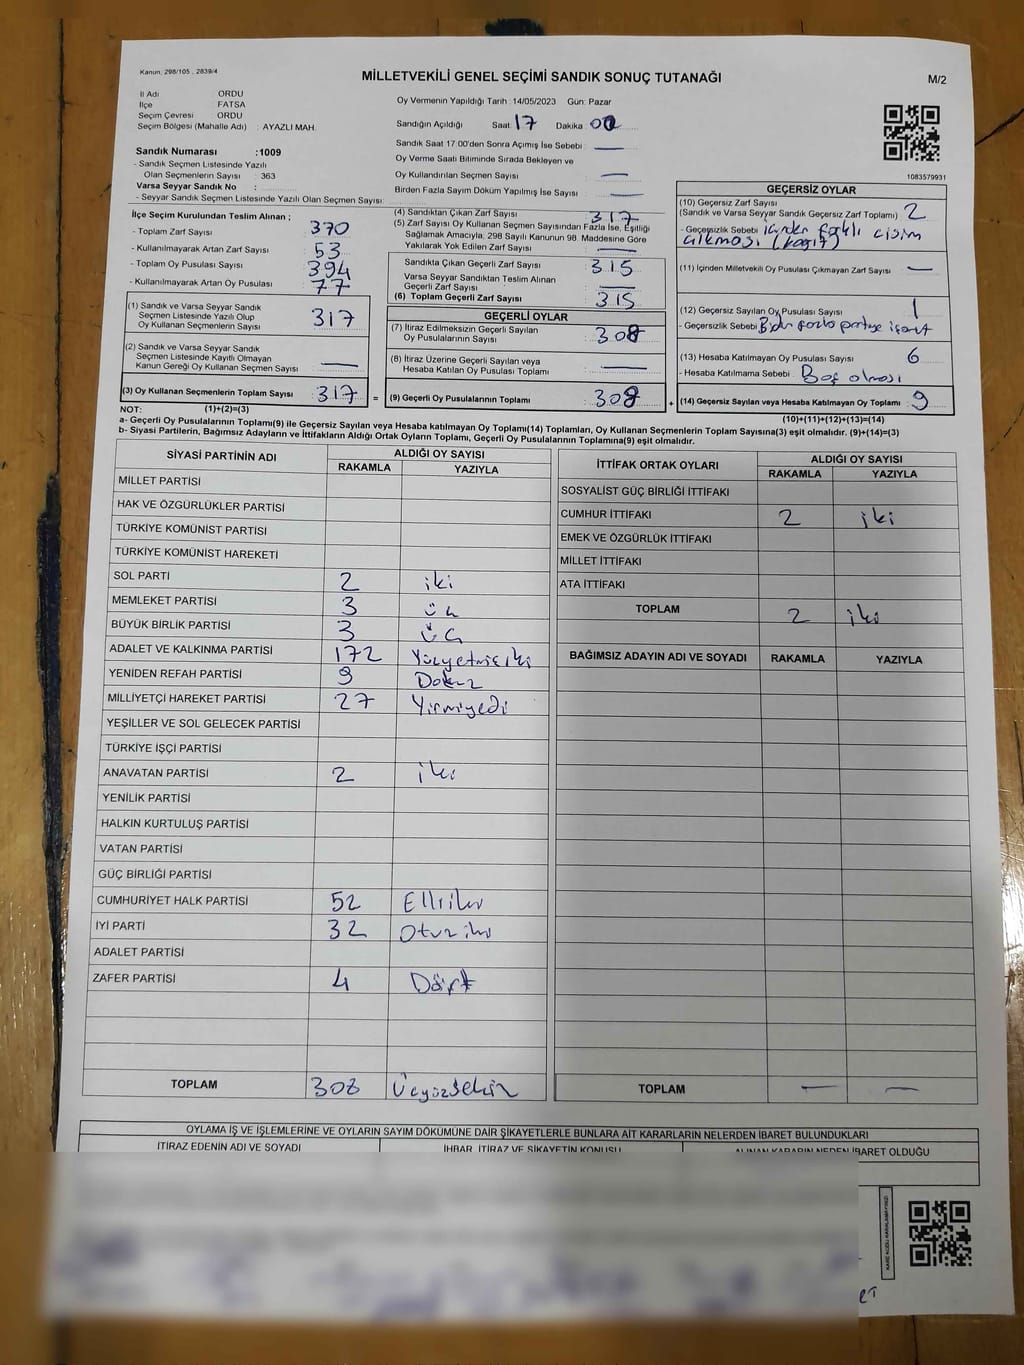 Kanun, 298/105 , 2839/4
MİLLETVEKİLİ GENEL SEÇİMİ SANDIK SONUÇ TUTANAĞI
M/2
İl Adı ORDU
İlçe FATSA
Seçim Çevresi ORDU
Seçim Bölgesi (Mahalle Adı) : AYAZLI MAH.
Sandık Numarası :1009
- Sandık Seçmen Listesinde Yazılı
Olan Seçmenlerin Sayısı : 363
Varsa Seyyar Sandık No :
- Seyyar Sandık Seçmen Listesinde Yazılı Olan Seçmen Sayısı:
Oy Vermenin Yapıldığı Tarih 14/05/2023 Gün: Pazar
Sandığın Açıldığı Saat 17 Dakika 00
Sandık Saat 17:00'den Sonra Açımış İse Sebebi : —
Oy Verme Saati Bitiminde Sırada Bekleyen ve
Oy Kullandırılan Seçmen Sayısı : —
Birden Fazla Sayım Döküm Yapılmış İse Sayısı : —
1083579931
İlçe Seçim Kurulundan Teslim Alınan ;
- Toplam Zarf Sayısı : 370
- Kullanılmayarak Artan Zarf Sayısı : 53
- Toplam Oy Pusulası Sayısı : 394
- Kullanılmayarak Artan Oy Pusulası : 77
(1) Sandık ve Varsa Seyyar Sandık
Seçmen Listesinde Yazılı Olup
Oy Kullanan Seçmenlerin Sayısı : 317
(2) Sandık ve Varsa Seyyar Sandık
Seçmen Listesinde Kayıtlı Olmayan
Kanun Gereği Oy Kullanan Seçmen Sayısı : —
(3) Oy Kullanan Seçmenlerin Toplam Sayısı : 317 =
(1)+(2)=(3)
(4) Sandıktan Çıkan Zarf Sayısı : 317
(5) Zarf Sayısı Oy Kullanan Seçmen Sayısından Fazla İse, Eşitliği
Sağlamak Amacıyla, 298 Sayılı Kanunun 98. Maddesine Göre
Yakılarak Yok Edilen Zarf Sayısı : —
Sandıkta Çıkan Geçerli Zarf Sayısı : 315
Varsa Seyyar Sandıktan Teslim Alınan
Geçerli Zarf Sayısı : —
(6) Toplam Geçerli Zarf Sayısı : 315
GEÇERLİ OYLAR
(7) İtiraz Edilmeksizin Geçerli Sayılan
Oy Pusulalarının Sayısı : 308
(8) İtiraz Üzerine Geçerli Sayılan veya
Hesaba Katılan Oy Pusulası Toplamı : —
(9) Geçerli Oy Pusulalarının Toplamı : 308 +
GEÇERSİZ OYLAR
(10) Geçersiz Zarf Sayısı
(Sandık ve Varsa Seyyar Sandık Geçersiz Zarf Toplamı) : 2
- Geçersizlik Sebebi : içinden farklı cisim
çıkması (kağıt)
(11) İçinden Milletvekili Oy Pusulası Çıkmayan Zarf Sayısı : —
(12) Geçersiz Sayılan Oy Pusulası Sayısı : 1
- Geçersizlik Sebebi : Birden fazla partiye işaret
(13) Hesaba Katılmayan Oy Pusulası Sayısı : 6
- Hesaba Katılmama Sebebi : Boş olması
(14) Geçersiz Sayılan veya Hesaba Katılmayan Oy Toplamı : 9
(10)+(11)+(12)+(13)=(14)
NOT:
a- Geçerli Oy Pusulası Toplamı(9) ile Geçersiz Sayılan veya Hesaba katılmayan Oy Toplamı(14) Toplamları, Oy Kullanan Seçmenlerin Toplam Sayısına(3) eşit olmalıdır. (9)+(14)=(3)
b- Siyasi Partilerin, Bağımsız Adayların ve İttifakların Aldığı Ortak Oyların Toplamı, Geçerli Oy Pusulalarının Toplamına(9) eşit olmalıdır.
SİYASİ PARTİNİN ADI ALDIĞI OY SAYISI
RAKAMLA YAZIYLA
MİLLET PARTİSİ
HAK VE ÖZGÜRLÜKLER PARTİSİ
TÜRKİYE KOMÜNİST PARTİSİ
TÜRKİYE KOMÜNİST HAREKETİ
SOL PARTİ 2 iki
MEMLEKET PARTİSİ 3 üç
BÜYÜK BİRLİK PARTİSİ 3 üç
ADALET VE KALKINMA PARTİSİ 172 Yüzyetmişiki
YENİDEN REFAH PARTİSİ 9 Dokuz
MİLLİYETÇİ HAREKET PARTİSİ 27 Yirmiyedi
YEŞİLLER VE SOL GELECEK PARTİSİ
TÜRKİYE İŞÇİ PARTİSİ
ANAVATAN PARTİSİ 2 iki
YENİLİK PARTİSİ
HALKIN KURTULUŞ PARTİSİ
VATAN PARTİSİ
GÜÇ BİRLİĞİ PARTİSİ
CUMHURİYET HALK PARTİSİ 52 Elliiki
İYİ PARTİ 32 Otuziki
ADALET PARTİSİ
ZAFER PARTİSİ 4 Dört
TOPLAM 308 Üçyüzsekiz
İTTİFAK ORTAK OYLARI ALDIĞI OY SAYISI
RAKAMLA YAZIYLA
SOSYALİST GÜÇ BİRLİĞİ İTTİFAKI
CUMHUR İTTİFAKI 2 iki
EMEK VE ÖZGÜRLÜK İTTİFAKI
MİLLET İTTİFAKI
ATA İTTİFAKI
TOPLAM 2 iki
BAĞIMSIZ ADAYIN ADI VE SOYADI RAKAMLA YAZIYLA
TOPLAM — —
OYLAMA İŞ VE İŞLEMLERİNE VE OYLARIN SAYIM DÖKÜMÜNE DAİR ŞİKAYETLERLE BUNLARA AİT KARARLARIN NELERDEN İBARET BULUNDUKLARI
İTİRAZ EDENİN ADI VE SOYADI İHBAR, İTİRAZ VE ŞİKAYETİN KONUSU ALINAN KARARIN NEDEN İBARET OLDUĞU